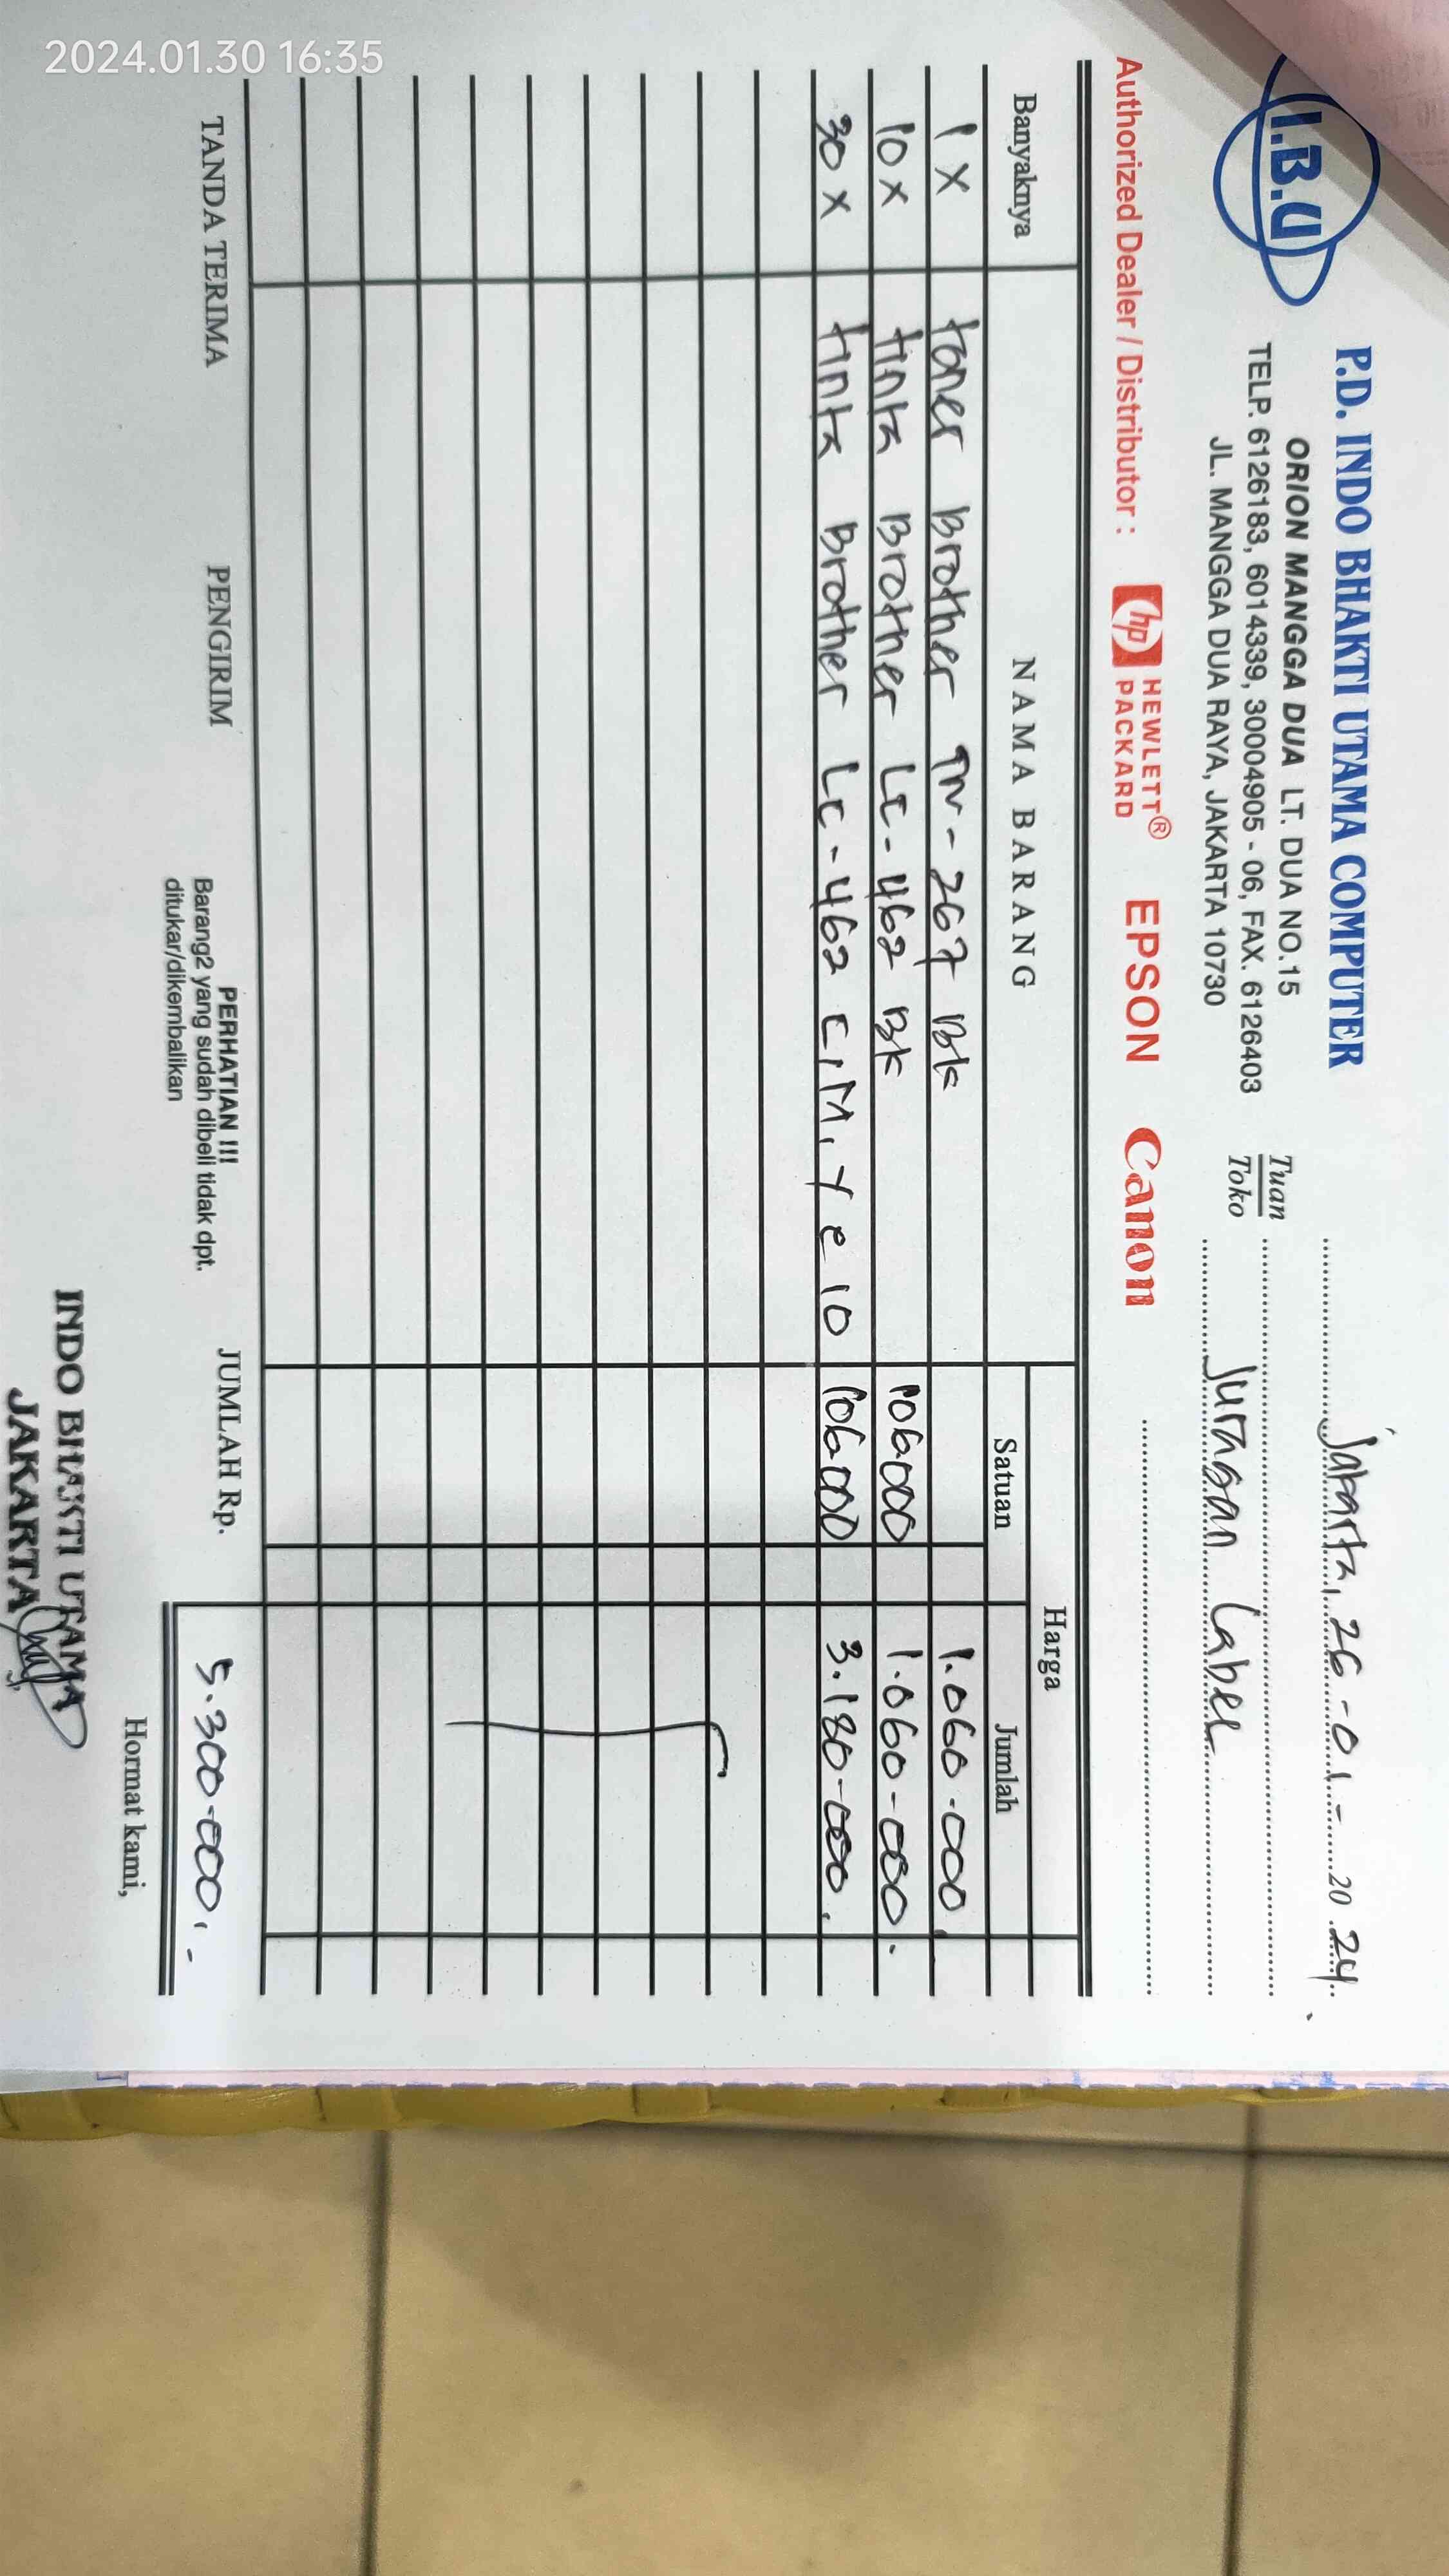 2024.01.30 16:35
I.B.U
P.D. INDO BHAKTI UTAMA COMPUTER
ORION MANGGA DUA LT. DUA NO.15
TELP. 6126183, 6014339, 30004905 - 06, FAX. 6126403
JL. MANGGA DUA RAYA, JAKARTA 10730
Jakarta, 26-01-2024.
Tuan
Toko
Juragan Label
Authorized Dealer / Distributor : hp HEWLETT® PACKARD EPSON Canon
Banyaknya NAMA BARANG Harga
Satuan Jumlah
1 X toner Brother TN-267 Bk 1.060.000.
10 X tinta Brother LC-462 Bk 106.000 1.060-000.
30 X tinta Brother LC-462 C,M,Y e 10 106.000 3.180-000.
TANDA TERIMA PENGIRIM
PERHATIAN !!!
Barang2 yang sudah dibeli tidak dpt.
ditukar/dikembalikan
JUMLAH Rp. 5.300-000,-
Hormat kami,
INDO BHAKTI UTAMA
JAKARTA